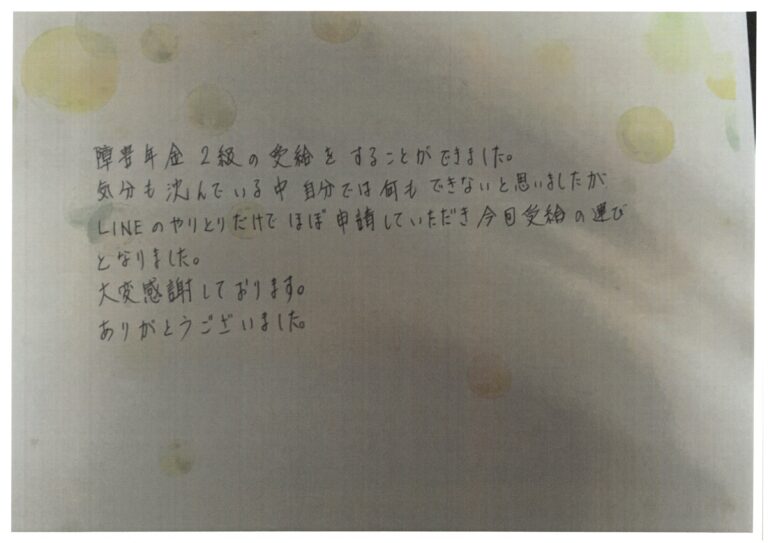 障害年金2級の受給をすることができました。
気分も沈んでいる中自分では何もできないと思いましたが
LINEのやりとりだけでほぼ申請していただき今回受給の運び
となりました。
大変感謝しております。
ありがとうございました。